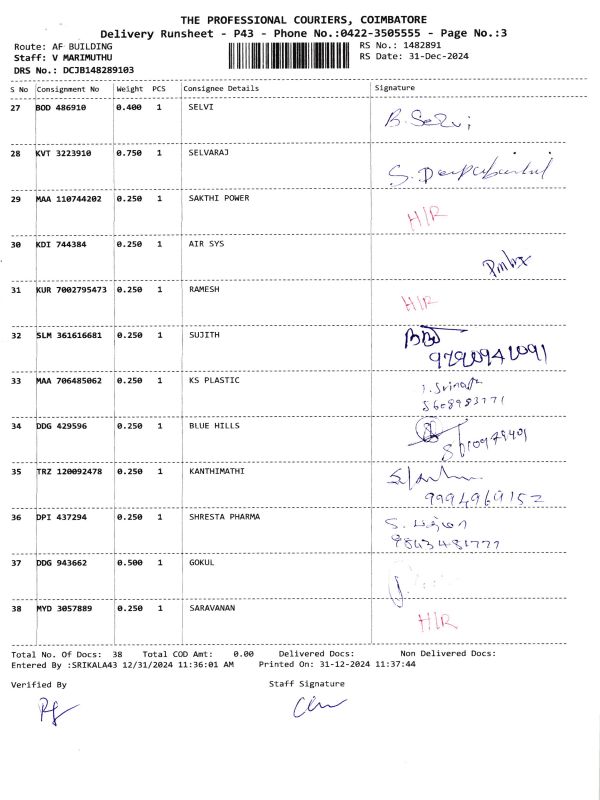 THE PROFESSIONAL COURIERS, COIMBATORE
Delivery Runsheet - P43 - Phone No.:0422-3505555 - Page No.:3
Route: AF BUILDING RS No.: 1482891
Staff: V MARIMUTHU RS Date: 31-Dec-2024
DRS No.: DCJB148289103
S No Consignment No Weight PCS Consignee Details Signature
27 BOD 486910 0.400 1 SELVI B. Selvi
28 KVT 3223910 0.750 1 SELVARAJ
29 MAA 110744202 0.250 1 SAKTHI POWER H/R
30 KDI 744384 0.250 1 AIR SYS
31 KUR 7002795473 0.250 1 RAMESH H/R
32 SLM 361616681 0.250 1 SUJITH
33 MAA 706485062 0.250 1 KS PLASTIC
34 DDG 429596 0.250 1 BLUE HILLS
35 TRZ 120092478 0.250 1 KANTHIMATHI
9994969152
36 DPI 437294 0.250 1 SHRESTA PHARMA
37 DDG 943662 0.500 1 GOKUL
38 MYD 3057889 0.250 1 SARAVANAN H/R
Total No. Of Docs: 38 Total COD Amt: 0.00 Delivered Docs: Non Delivered Docs:
Entered By :SRIKALA43 12/31/2024 11:36:01 AM Printed On: 31-12-2024 11:37:44
Verified By Staff Signature